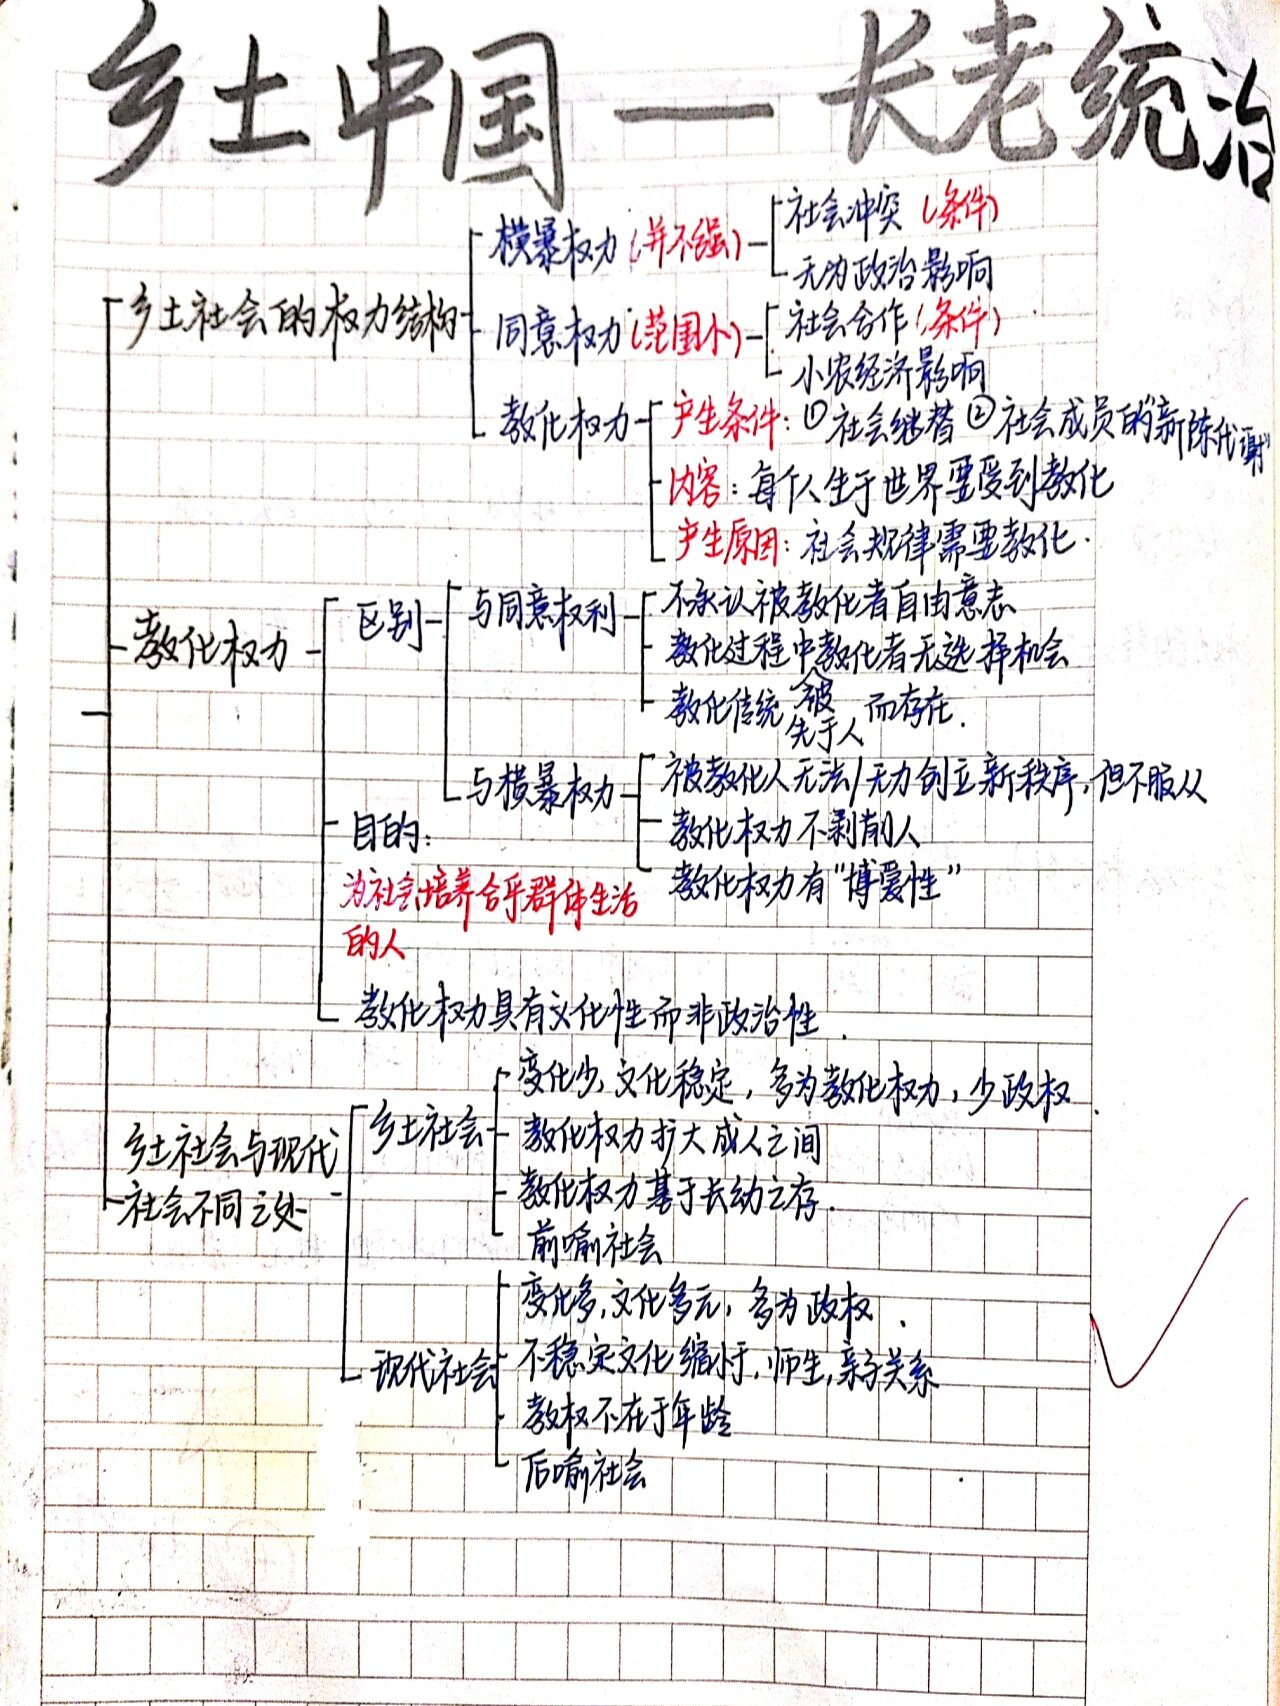 乡土中国一长老统治
横暴权力(并不强)
社会冲突(条件)
无为政治影响
乡土社会的权力结构
同意权力(范围小)
社会合作(条件)
小农经济影响
教化权力
产生条件:①社会继替②社会成员的"新陈代谢"
内容:每个人生于世界要受到教化
产生原因:社会规律需要教化.
教化权力
区别
与同意权利
不承认被教化者自由意志
教化过程中被教化者无选择机会
教化传统先于人而存在.
与横暴权力
被教化人无法/无力创立新秩序,但不服从
教化权力不剥削人
教化权力有"博爱性"
目的:
为社会培养合乎群体生活
的人
教化权力具有文化性而非政治性.
乡土社会与现代
社会不同之处
乡土社会
变化少,文化稳定,多为教化权力,少政权.
教化权力扩大成人之间
教化权力基于长幼之存.
前喻社会
现代社会
变化多,文化多元,多为政权.
不稳定文化缩小于,师生,亲子关系
教权不在于年龄
后喻社会